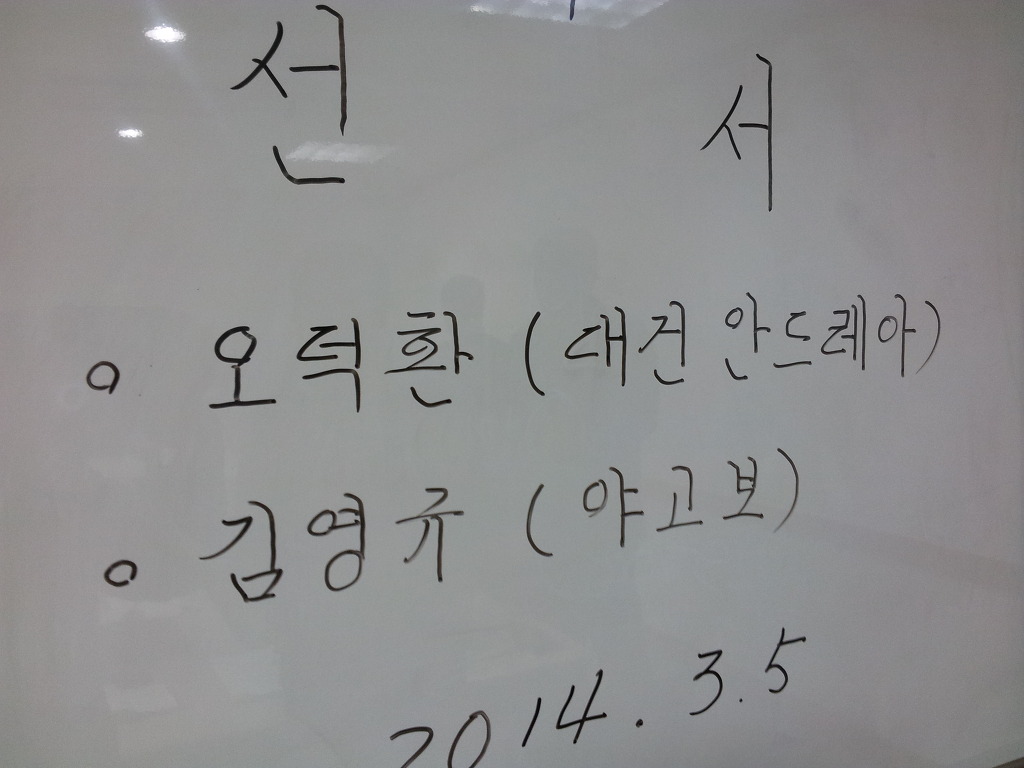 선 서
o 오덕환 (대건 안드레아)
o 김영규 (야고보)
2014. 3. 5